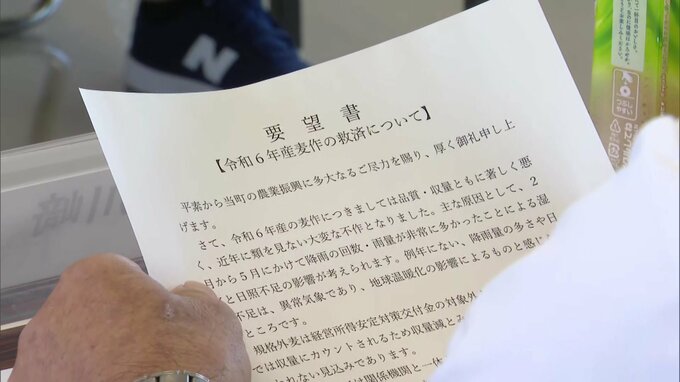 要望書
【令和6年産麦作の救済について】
平素から当町の農業振興に多大なるご尽力を賜り、厚く御礼申し上
げます。
さて、令和6年産の麦作につきましては品質・収量ともに著しく悪
く、近年に類を見ない大変な不作となりました。主な原因として、2
月から5月にかけて降雨の回数・雨量が非常に多かったことによる湿
と日照不足の影響が考えられます。例年にない、降雨量の多さや日
不足は、異常気象であり、地球温暖化の影響によるものと感じ
ところです。
規格外麦は経営所得安定対策交付金の対象外
では収量にカウントされるため収量減とみ
われない見込みであります。
は関係機関と一体
N
川崎
つぶし
やすい